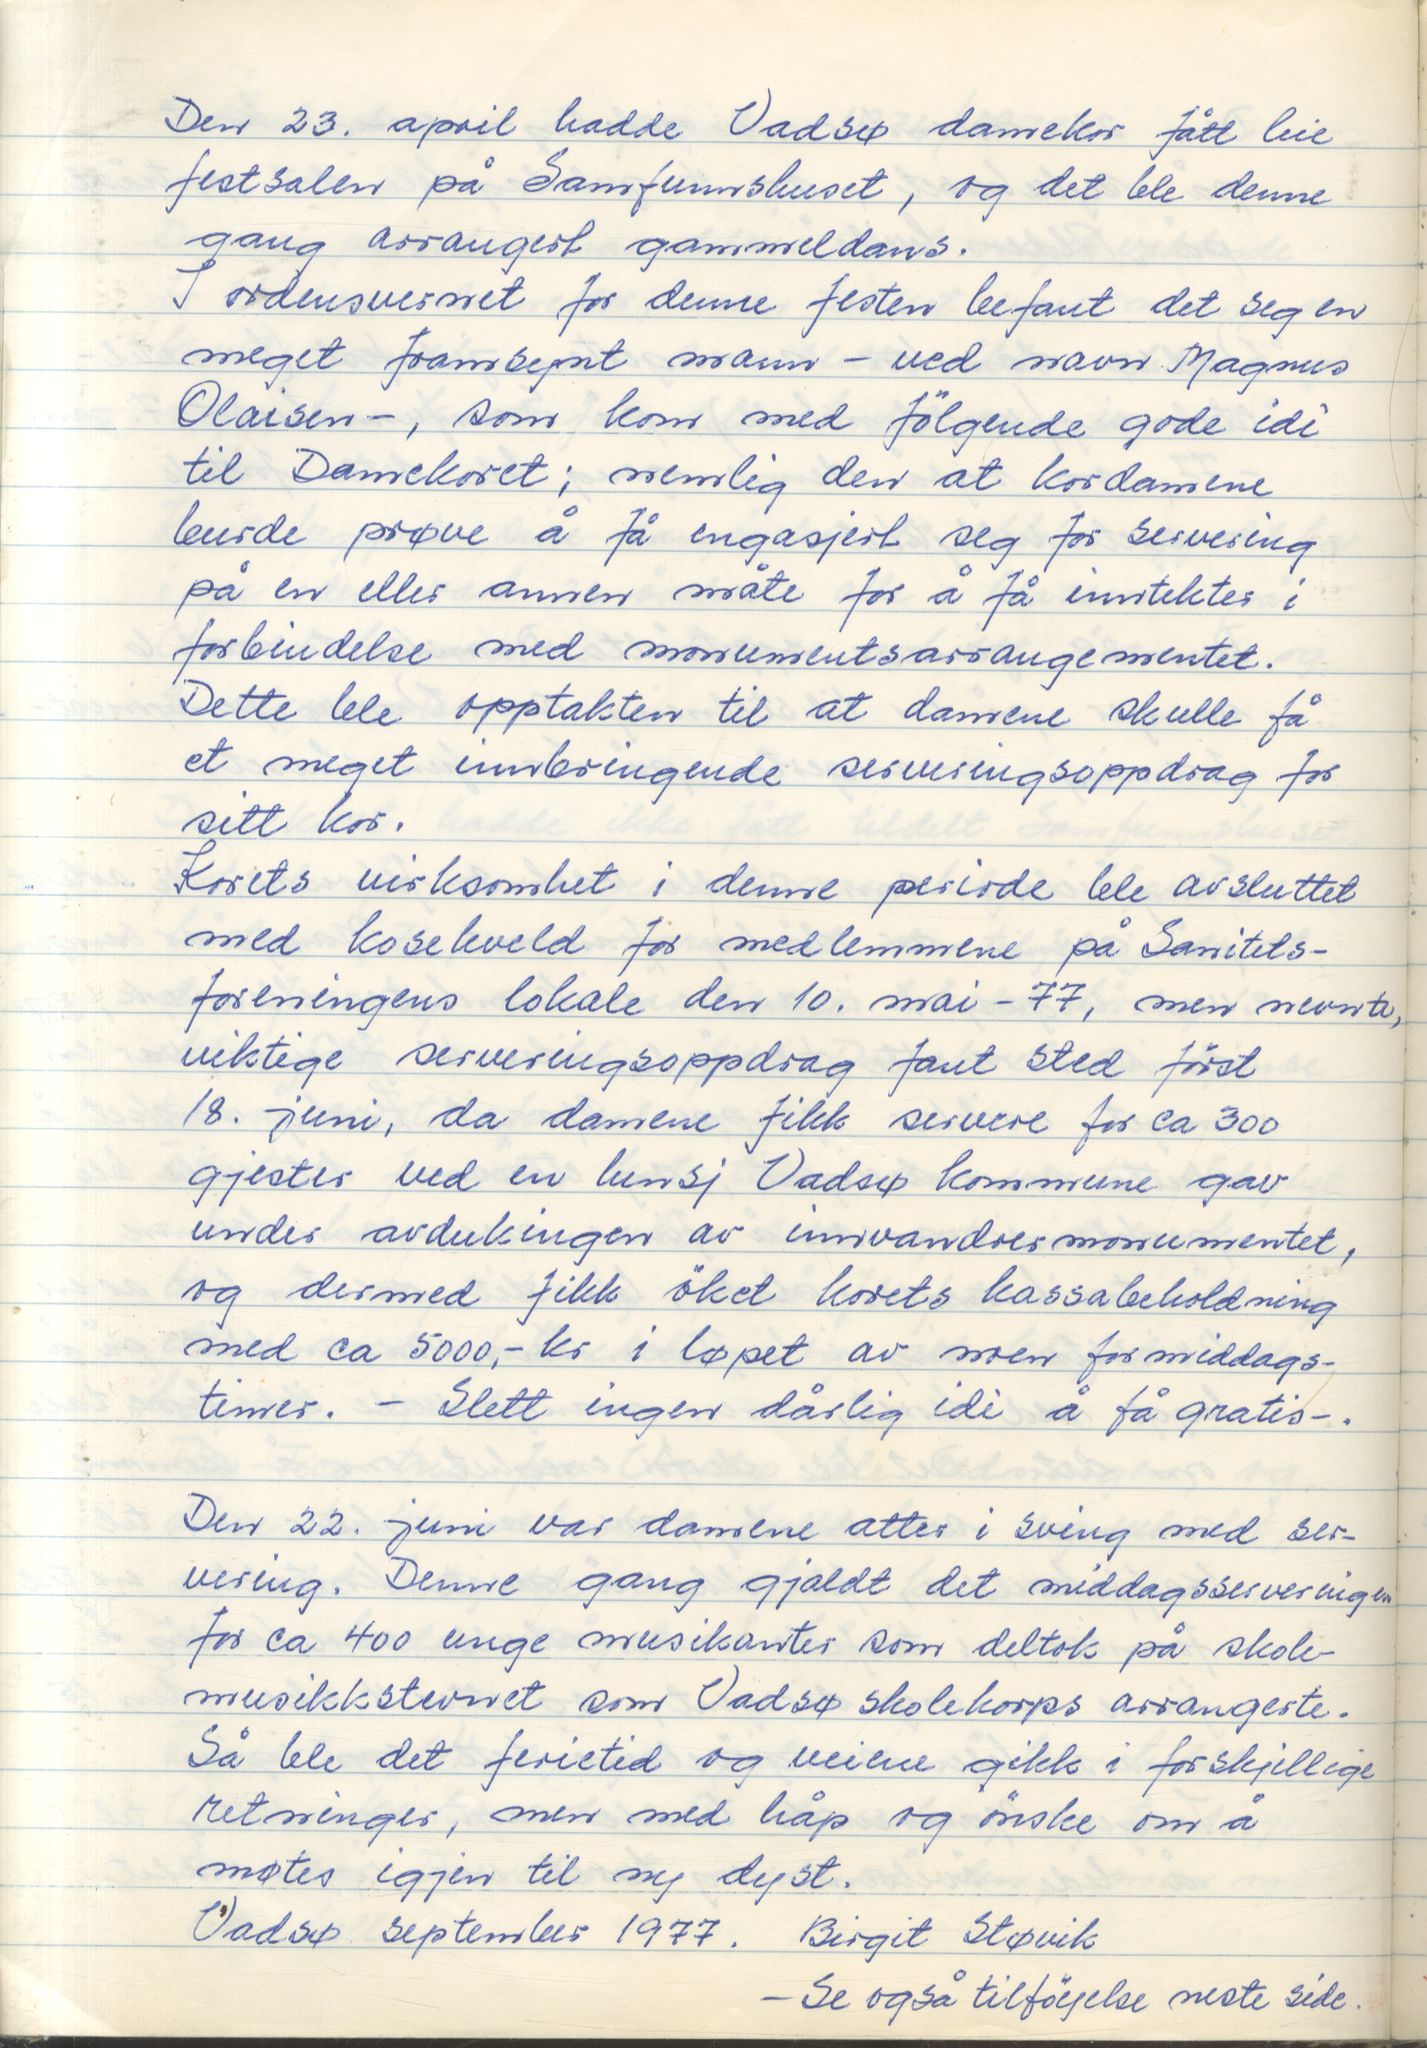 Den 23. april hadde Vadsø damekor fått leie
festsalen på Samfunnshuset, og det ble denne
gang arrangert gammeldans.
I ordensvernet for denne festen befant det seg en
meget framsynt mann – ved navn Magnus
Olaisen –, som kom med fölgende gode idé
til Damekoret; nemlig den at kordamene
burde prøve å få engasjert seg for servering
på en eller annen måte for å få inntekter i
forbindelse med monumentsarrangementet.
Dette ble opptakten til at damene skulle få
et meget innbringende serveringsoppdrag for
sitt kor.
Korets virksomhet i denne periode ble avsluttet
med kosekveld for medlemmene på Sanitets-
foreningens lokale den 10. mai – 77, men nevnte,
viktige serveringsoppdrag fant sted först
18. juni, da damene fikk servere for ca 300
gjester ved en lunsj Vadsø kommune gav
under avdukingen av innvandrermonumentet,
og dermed fikk öket korets kassabeholdning
med ca 5000,- kr i løpet av noen formiddags-
timer. – Slett ingen dårlig idé å få gratis –.
Den 22. juni var damene atter i sving med ser-
vering. Denne gang gjaldt det middagsserveringen
for ca 400 unge musikanter som deltok på skole-
musikkstevnet som Vadsø skolekorps arrangerte.
Så ble det ferietid og veiene gikk i forskjellige
retninger, men med håp og önske om å
møtes igjen til ny dyst.
Vadsø september 1977. Birgit Støvik
– Se også tilföyelse neste side.